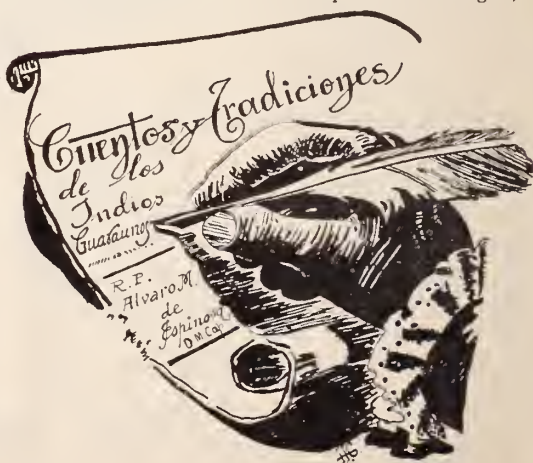 Cuentos y Tradiciones
de los
Indios
Guaraunos
R. P.
Alvaro M.
de
Espinosa
O M Cap